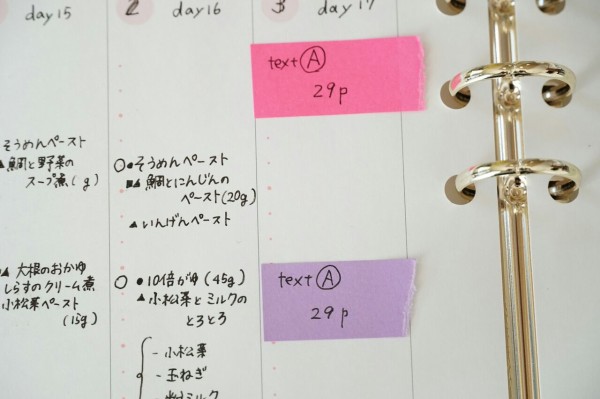 day 15
そうめんペースト
▲鯛と野菜の
スープ煮( g)
▲大根のおかゆ
しらすのクリーム煮
小松菜ペースト
(15g)
2 day 16
○●そうめんペースト
■▲鯛とにんじんの
ペースト(20g)
▲いんげんペースト
○ ●10倍がゆ(45g)
▲小松菜とミルクの
とろとろ
- 小松菜
- 玉ねぎ
- 粉ミルク
3 day 17
text Ⓐ
29p
text Ⓐ
29p